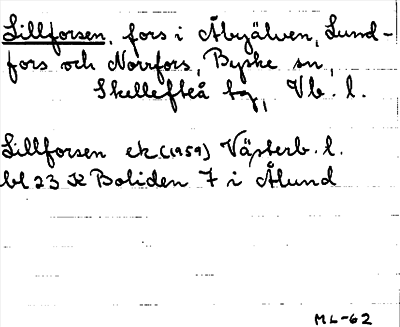 Lillforsen, fors i Åbyälven, Lund-
fors och Norrfors, Byske sn,
Skellefteå tg, Vb. l.
Lillforsen ek (1959) Västerb. l.
bl 23 K Boliden 7 i Ålund
ML-62